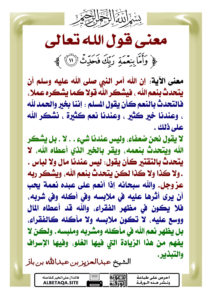 بسم الله الرحمن الرحيم
معنى قول الله تعالى
﴿ وَأَمَّا بِنِعْمَةِ رَبِّكَ فَحَدِّثْ ﴾ ١١
معنى الآية: إن الله أمر النبي صلى الله عليه وسلم أن
يتحدث بنعم الله، فيشكر الله قولا كما يشكره عملا،
فالتحدث بالنعم كأن يقول المسلم : إننا بخير والحمد لله
، وعندنا خير كثير ، وعندنا نعم كثيرة ، نشكر الله
على ذلك .
لا يقول نحن ضعفاء، وليس عندنا شيء .. لا . بل يشكر
الله ويتحدث بنعمه، ويقر بالخير الذي أعطاه الله، لا
يتحدث بالتقتير كأن يقول: ليس عندنا مال ولا لباس ..
ولا كذا ولا كذا لكن يتحدث بنعم الله، ويشكر ربه
عز وجل. والله سبحانه إذا أنعم على عبده نعمة يحب
أن يرى أثرها عليه في ملابسه وفي أكله وفي شربه،
فلا يكون في مظهر الفقراء، والله قد أعطاه المال
ووسع عليه، لا تكون ملابسه ولا مآكله كالفقراء،
بل يظهر نعم الله في مأكله ومشربه وملبسه. ولكن لا
يفهم من هذا الزيادة التي فيها الغلو، وفيها الإسراف
والتبذير.
الشيخ عبدالعزيز بن عبدالله بن باز
ALBETAQA.SITE